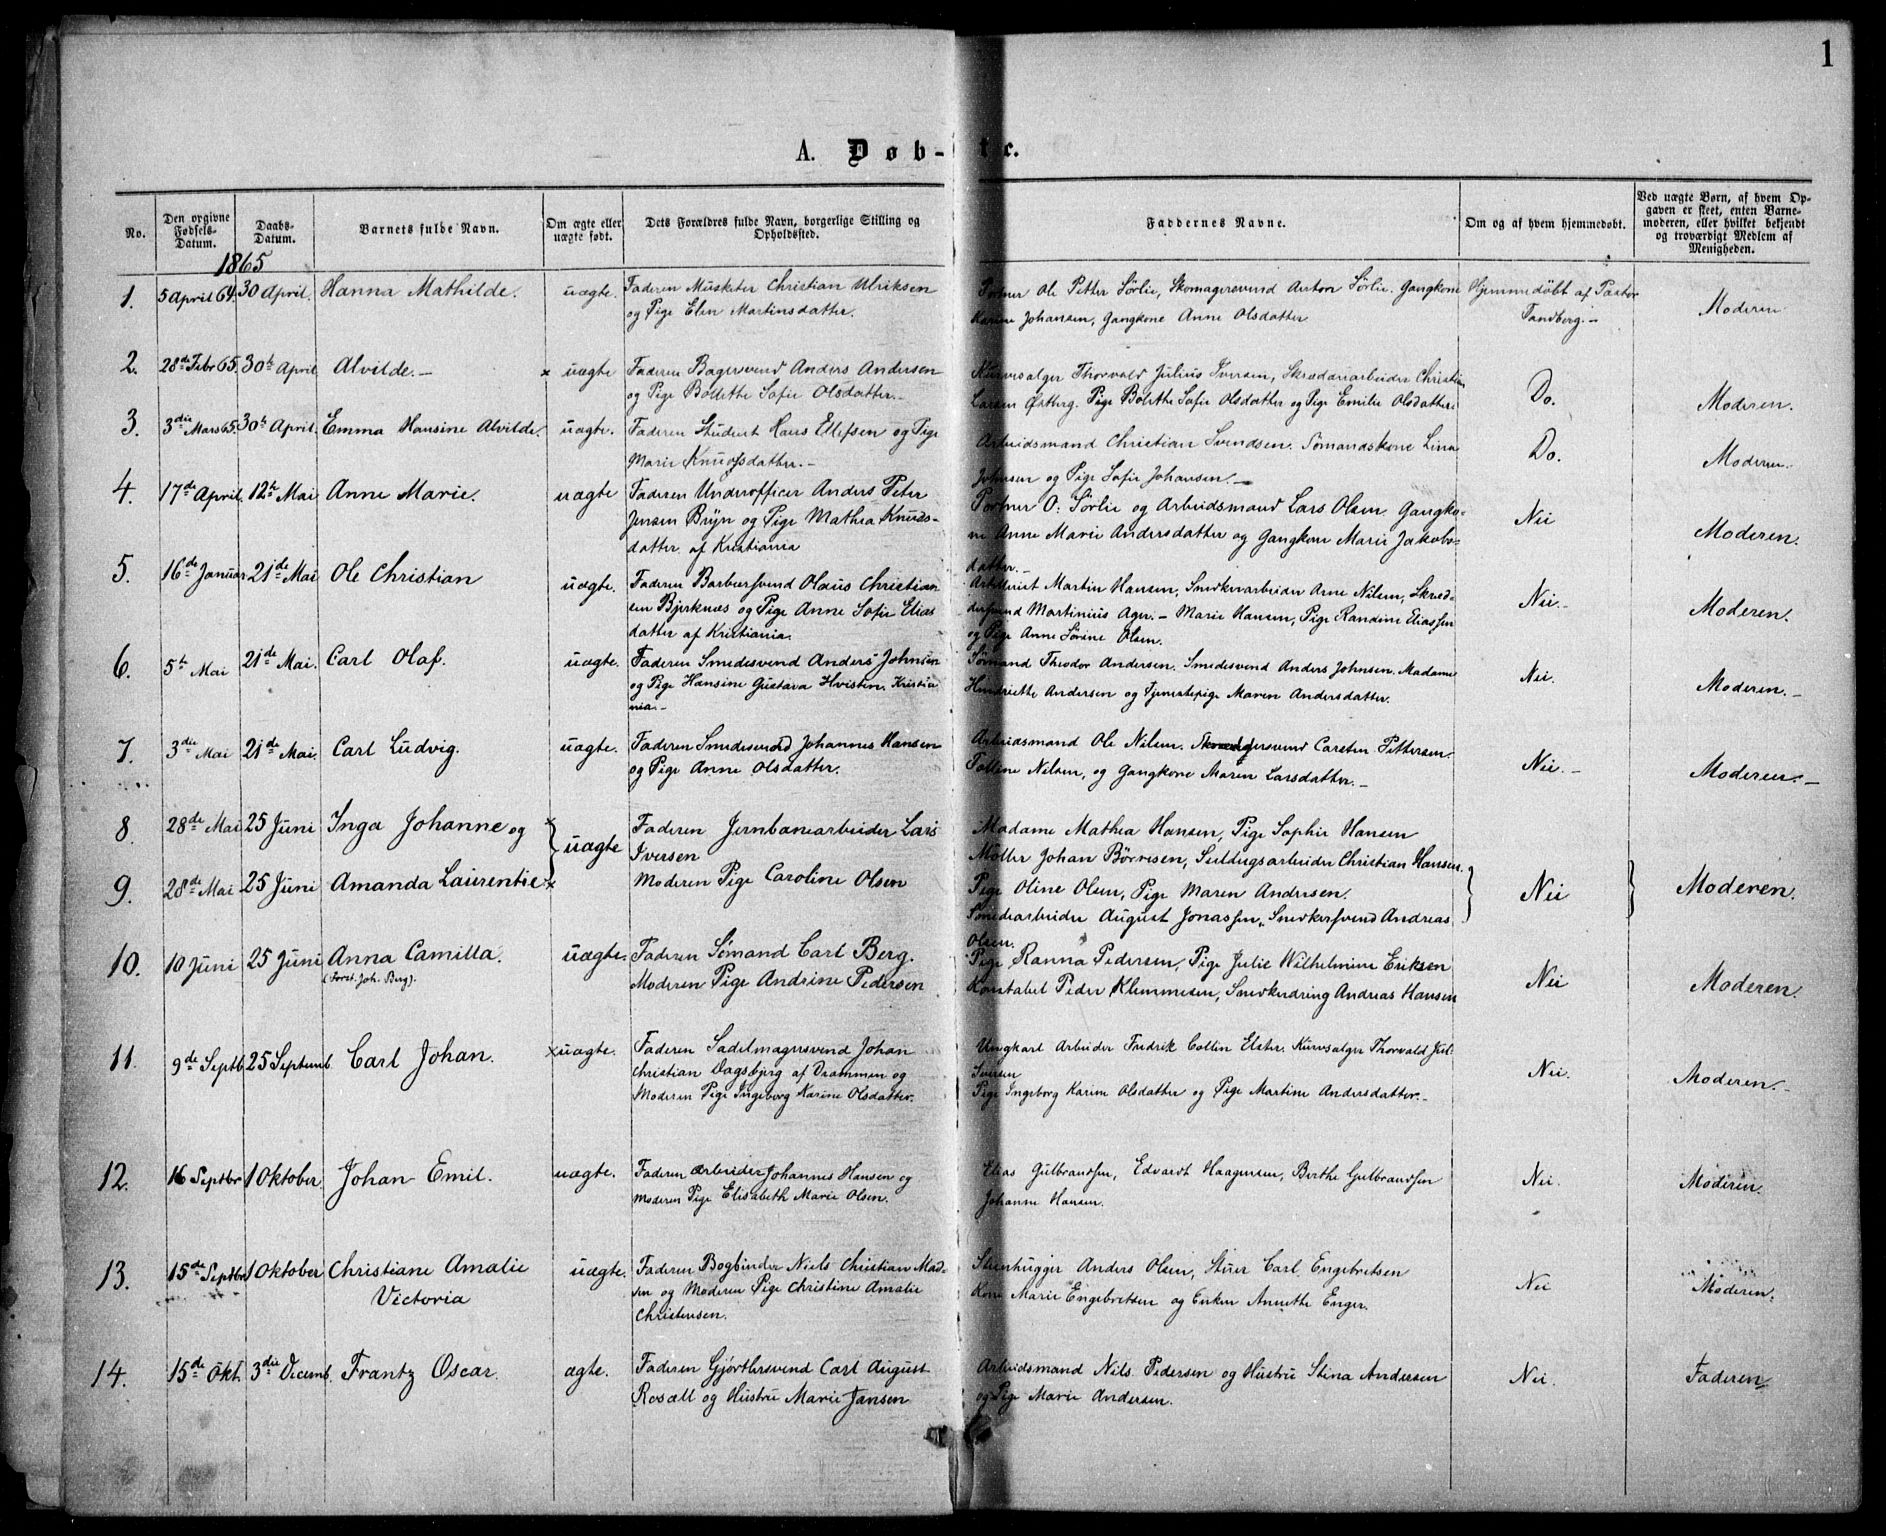 1
A. Døb-te.
No.
Den opgivne Fødsels-Datum.
Daabs-Datum.
Barnets fulde Navn.
Om ægte eller uægte født.
Dets Forældres fulde Navn, borgerlige Stilling og Opholdssted.
Faddernes Navne.
Om og af hvem hjemmedøbt.
Ved uægte Børn, af hvem Opgaven er skeet, enten Barnemoderen, eller hvilket bekjendt og troværdigt Medlem af Menigheden.
1865
1. 5 April 64. 30 April. Hanna Mathilde. uægte. Faderen Musketer Christian Ulriksen
og Pige Elen Martinsdatter.
Portner Ole Petter Sørlie, Skomagersvend Anton Sørlie. Gangkone
Karine Johansen, Gangkone Anne Olsdatter
Hjemmedøbt af Pastor
Tandberg.-
Moderen
2. 28de Febr 65. 30te April. Alvilde.- x uægte Faderen Bagersvend Anders Andersen
og Pige Bolette Sofie Olsdatter.-
Kurvsælger Thorvald Julius Iversen, Skrædderarbeider Christian
Larsen Østberg. Pige Bolette Sofie Olsdatter og Pige Emilie Olsdatter.
Do.
Moderen.
3. 3die Mars 65. 30te April. Emma Hansine Alvilde. uægte. Faderen Student Hans Ellefsen og Pige
Marie Knudsdatter.-
Arbeidsmand Christian Svendsen. Sømandskone Lina
Johnsen og Pige Sofie Johansen.-
Do.
Moderen.
4. 17de April. 12te Mai Anne Marie. uægte Faderen Underofficer Anders Peter
Jensen Bryn og Pige Mathea Knuds-
datter af Kristiania
Portner O: Sørlie og Arbeidsmand Lars Olsen. Gangko-
ne Anne Marie Andersdatter og Gangkone Marie Jakobs-
datter.-
Nei
Moderen.
5. 16de Januar 21de Mai Ole Christian uægte. Faderen Barbersvend Olaus Christian
sen Bjerknæs og Pige Anne Sofie Elias
datter af Kristiania.
Artillerist Martin Hansen, Snedkerarbeider Arne Nilsen, Skræd-
dersvend Martinius Ager.- Marie Hansen, Pige Randine Eliassen
og Pige Anne Sørine Olsen.
Nei.-
Moderen.
6. 5te Mai 21de Mai. Carl Olaf. uægte. Faderen Smedesvend Anders Johnsen
og Pige Hansine Gustava Hvisten. Kristia
nia.-
Sømand Theodor Andersen. Smedesvend Anders Johnsen. Madame
Hendriette Andersen og Tjenestepige Maren Andersdatter.
Nei.
Moderen.-
7. 3die Mai 21de Mai. Carl Ludvig. uægte. Faderen Smedesvend Johannes Hansen
og Pige Anne Olsdatter.
Arbeidsmand Ole Nilsen. Carsten Pettersen.
Nilsen, og Gangkone Maren Larsdatter.-
Nei.-
Moderen.-
8. 28de Mai 25 Juni Inga Johanne og x uægte Faderen Jernbanearbeider Lars
Iversen
Madame Mathea Hansen, Pige Sophie Hansen
Møller Johan Børresen, Seildugsarbeider Christian Hansen.
9. 28de Mai 25 Juni Amanda Laurentie x Moderen Pige Caroline Olsen
Pige Oline Olsen, Pige Maren Andersen.
Smedearbeider August Jonassen, Snedkersvend Andreas
Olsen.
Nei
Moderen.
10. 10 Juni 25 Juni Anna Camilla.
(Forst. Joh. Berg).
uægte. Faderen Sømand Carl Berg.
Moderen Pige Andrine Pedersen
Pige Ranna Pedersen, Pige Julie Wilhelmine Eriksen
Konstabel Peder Klemmesen, Snedkerdreng Andreas Hansen
Nei
Moderen.
11. 9de Septb. 25 Septemb. Carl Johan. x uægte. Faderen Sadelmagersvend Johan
Christian Dagsbjerg af Drammen og
Moderen Pige Ingeborg Karine Olsdatter.
Ungkarl Arbeider Fredrik Collin Elster. Kurvsælger Thorvald Jul.
Iversen
Pige Ingeborg Karine Olsdatter og Pige Martine Andersdatter.-
Nei.
Moderen.-
12. 16 Septbr 1 Oktober. Johan Emil. uægte. Faderen Arbeider Johannes Hansen og
Moderen Pige Elisabeth Marie Olsen.
Elias Gulbrandsen, Edvardt Haagensen, Berthe Gulbrandsen
Johanne Hansen.
Nei.
Moderen.
13. 15de Septbr 1 Oktober Christiane Amalie
Victoria
uægte. Faderen Bogbinder Niels Christian Mad-
sen og Moderen Pige Christine Amalie
Christensen.
Steenhugger Anders Olsen, Carl Engebretsen
Kone Marie Engebretsen og Enken Annette Enger.
Nei
Moderen.
14. 15de Okt. 3die Decemb. Frantz Oscar. ægte. Faderen Gjørtlersvend Carl August
Rosæll og Hustru Marie Jansen
Arbeidsmand Nils Pedersen og Hustru Stina Andersen
og Pige Marie Andersen.
Nei.
Faderen